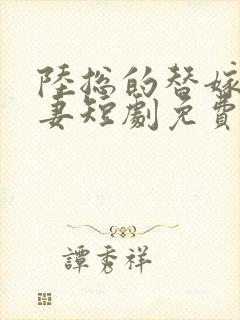 陸総的替嫁
妻短劇免費
譚秀祥